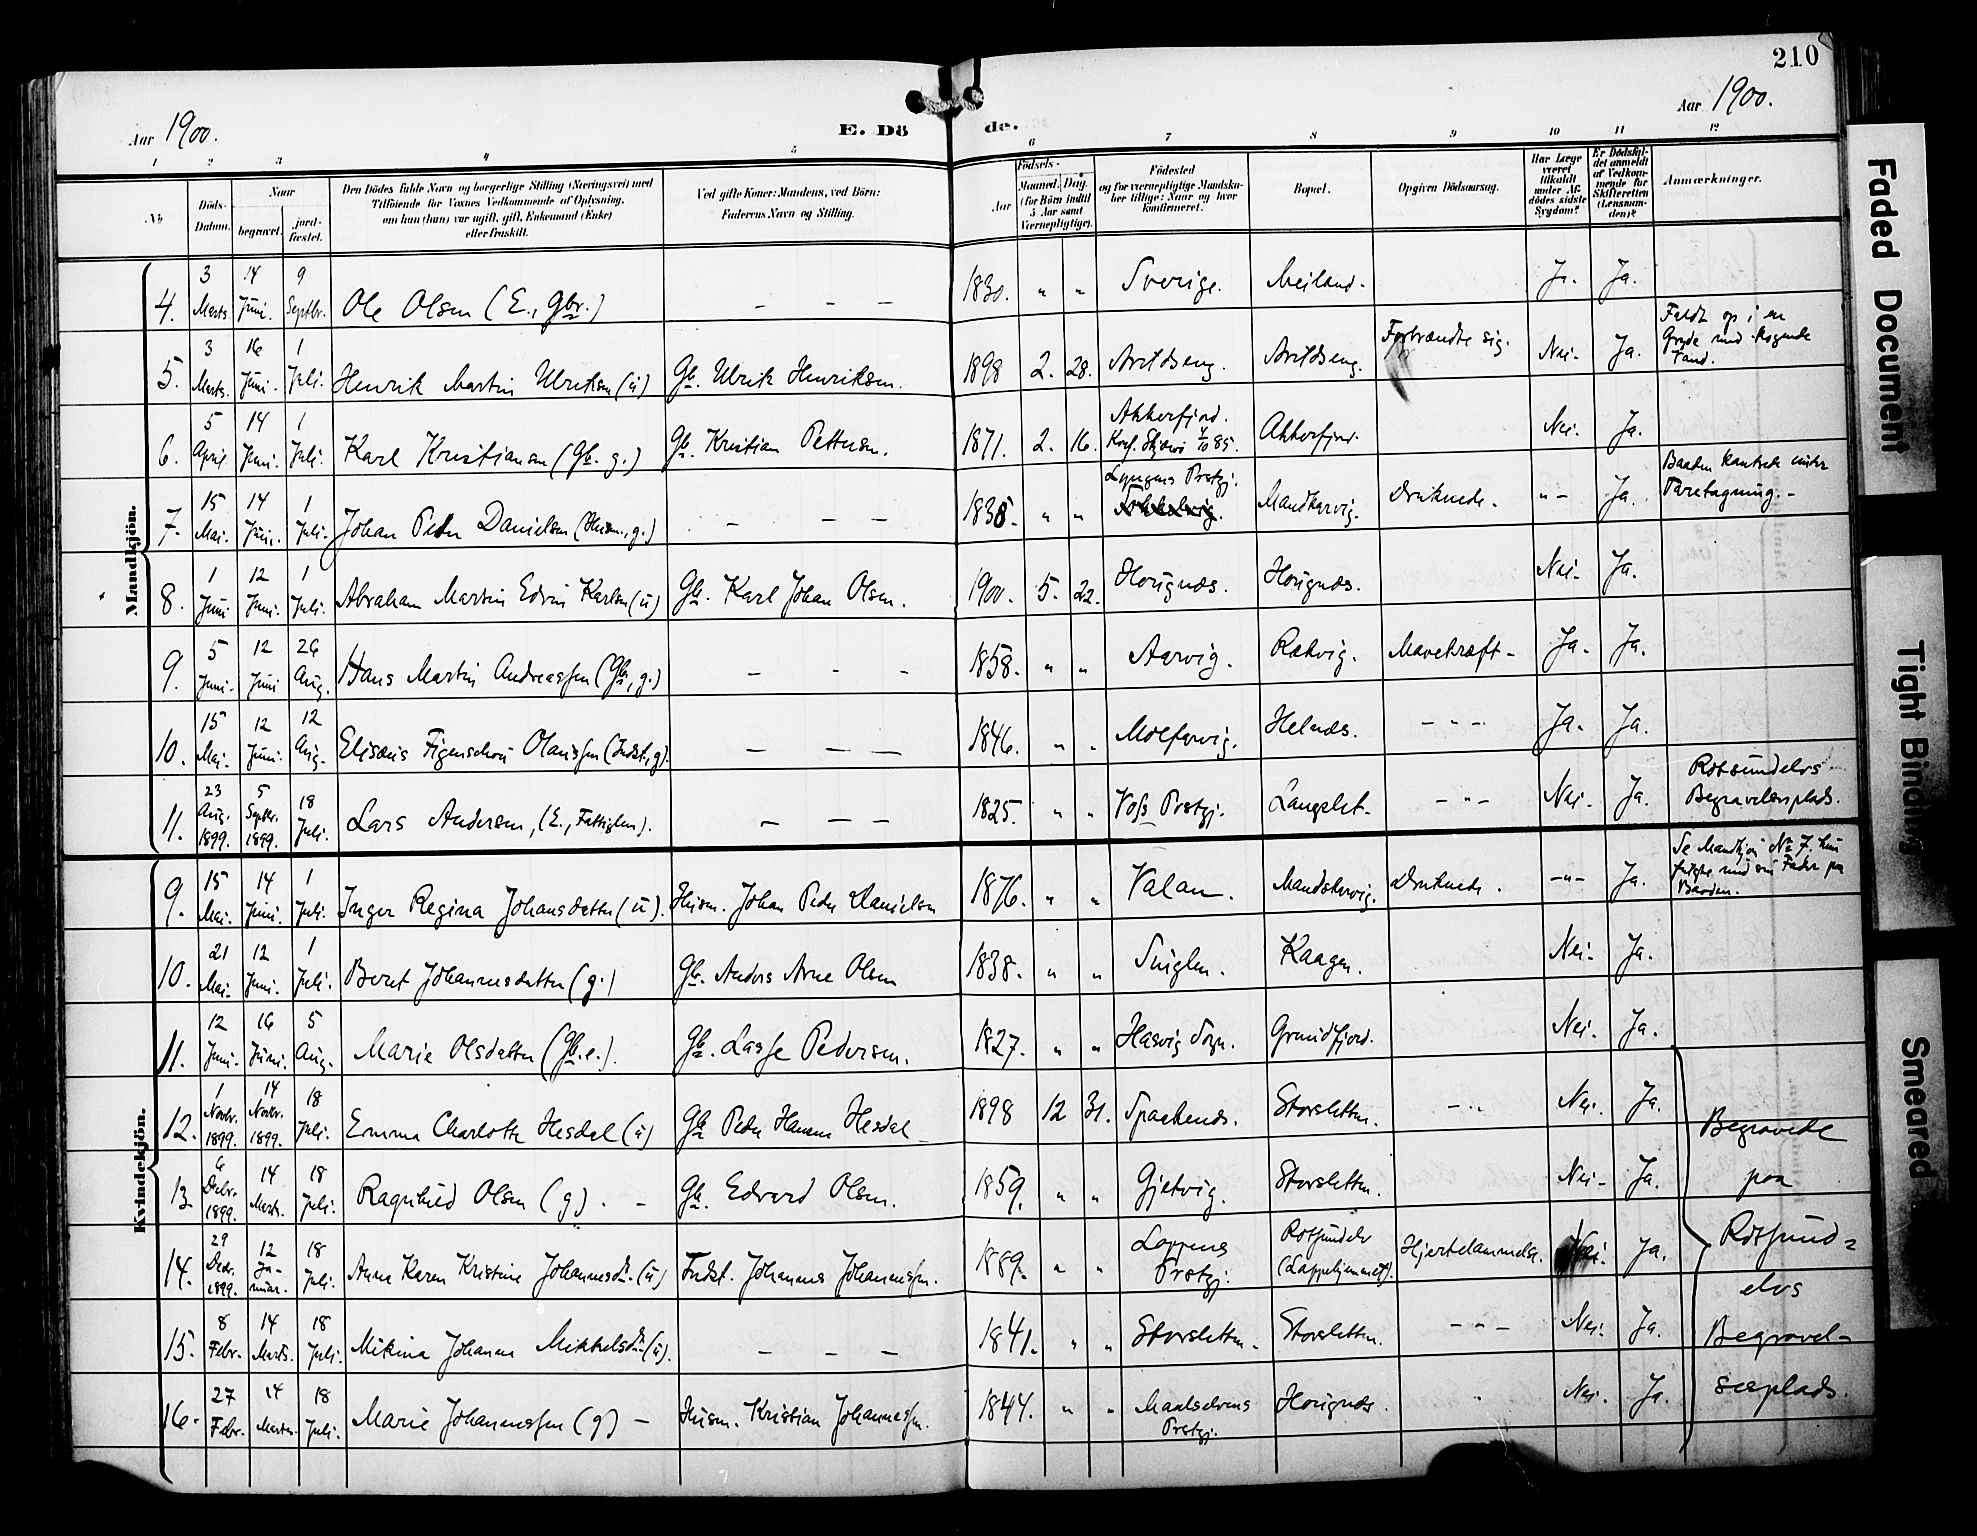 210
Aar 1900.
E. Dö
de.
Aar 1900.
1 2 3 4 5 6 7 8 9 10 11 12
No
Döds-Datum.
Naar
begravet.
jordfæstet.
Den Dödes fulde Navn og borgerlige Stilling (Næringsvei) med
Tilföiende for Voxnes Vedkommende af Oplysning,
om han (hun) var ugift, gift, Enkemand (Enke)
eller fraskilt.
Ved gifte Koner: Mandens, ved Börn:
Faderens Navn og Stilling.
Födsels-
Aar
Maaned. Dag.
(for Börn indtil
5 Aar samt
Værnepligtige).
Födested
og for værnepligtige Mandskaber tillige: Naar og hvor
konfirmeret.
Bopæl.
Opgiven Dödsaarsag.
Har Læge været tilkaldt under Afdödes sidste Sygdom?
Er Dödsfaldet anmeldt af Vedkommende for Skifteretten (Lensmanden)?
Anmærkninger.
Mandkjön.
4. 3 Marts. 14 Juni. 9 Septbr. Ole Olsen (E., Gbr.) — — — 1830. " " Sverige. Meiland. Ja. Ja.
5. 3 Marts. 16 Juni. 1 Juli. Henrik Martin Ulriksen (u) Gb. Ulrik Henriksen. 1898 2. 28. Arvidseng. Arvidseng. Forbrændte sig. Nei. Ja. Faldt op i en Gryde med kogende Vand.
6. 5 April. 14 Juni. 1 Juli. Karl Kristiansen (Gb. g.) Gb. Kristian Pettersen. 1871. 2. 16. Akkerfjord. Konf. Skjervö 4/10 85. Akkerfjord. Nei. Ja.
7. 15 Mai. 14 Juni. 1 Juli. Johan Peder Danielsen (Husm., g.) — — — 1835. " " Lyngens Prstgj. Druknede. "- Ja. Baaden kantrede under
8. 1 Juni 12 Juni. 1 Juli. Abraham Martin Edvin Karlsen (u) Gb. Karl Johan Olsen. 1900. 5. 22. Haugnæs. Haugnæs. Nei. Ja.
9. 5 Juni. 12 Juni 26 Aug. Hans Martin Andreassen (Gb., g.) — - - 1858. " " Aarvig. Rakvig. Mavekræft - Ja. Ja.
10. 15 Mai. 12 Juni. 12 Aug. Elisæus Figenschou Olaussen (Indst., g). — — — 1846. " " Helnæs. - " - Ja. Ja.
11. 23 Aug. 1899. 5 Septbr. 1899. 18 Juli. Lars Andersen, (E., Fattiglem). — — — 1825. " " Voss Prstgj. Langslet. - " - Nei. Ja. Rotsundelvs Begravelsesplads.
Kvindekjön.
9. 15 Mai. 14 Juni. 1 Juli. Inger Regina Johansdatter (u). Husm. Johan Peder Danielsen 1876. " " Valan. Druknede. -"- Ja. Se Mandkjön No 7. hun fulgte med sin Fader paa Baaden.
10. 21 Mai. 12 Juni. 1 Juli. Beret Johannesdatter (g.) Gb. Anders Arne Olsen 1838. " " Kaagen. Nei. Ja.
11. 12 Juni. 16 Juni. 5 Aug. Marie Olsdatter (Gb. e.). Gb. Lasse Pedersen. 1827. " " Hasvig Sogn. Grundfjord. Nei. Ja.
12. 1 Novbr. 1899. 14 Novbr. 1899. 18 Juli. Emma Charlotte Hesdal (u) Gb Peder Hansen Hesdal 1898 12 31. Spaakenæs. Storsletten. - " Nei. Ja.
13. 6 Decbr. 1899. 14 Marts. 18 Juli. Ragnhild Olsen (g). - Gb. Edvard Olsen. 1859. " " Gjetvig. Storsletten. Nei. Ja.
14. 29 Decbr. 1899. 12 Januar. 18 Juli. Anna Karen Kristine Johannesdtr. (u) Indst. Johannes Johannessen. 1889. " " Loppens Prstgj. Rotsundelv (Lappehjemmet). Hjertelammelse. Nei. Ja.
15. 8 Febr. 14 Marts. 18 Juli. Mikina Johanna Mikkelsdtr. (u). — — — 1841. " " Storsletten. Storsletten. - " - Nei. Ja.
16. 27 Febr. 14 Marts. 18 Juli. Marie Johannessen (g) - Husm. Kristian Johannessen. 1844. " " Maalselvens Prstgj. Haugnæs. " Nei. Ja.
Begravede
paa
Rotsund-
elvs
Begravel-
sesplads.
Faded Document
Tight Binding
Smeared